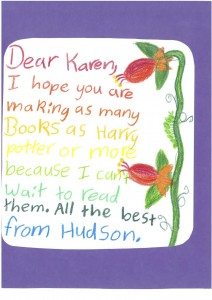 Dear Karen,
I hope you are
making as many
Books as Harry
potter or more
because I can't
wait to read
them. All the best
from Hudson.